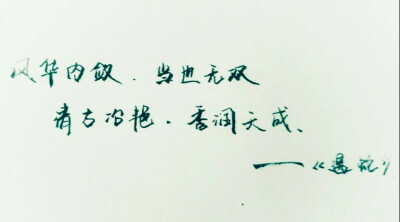 风华内敛.当世无双
清古冶艳.秀润天成、
——《遇蛇》